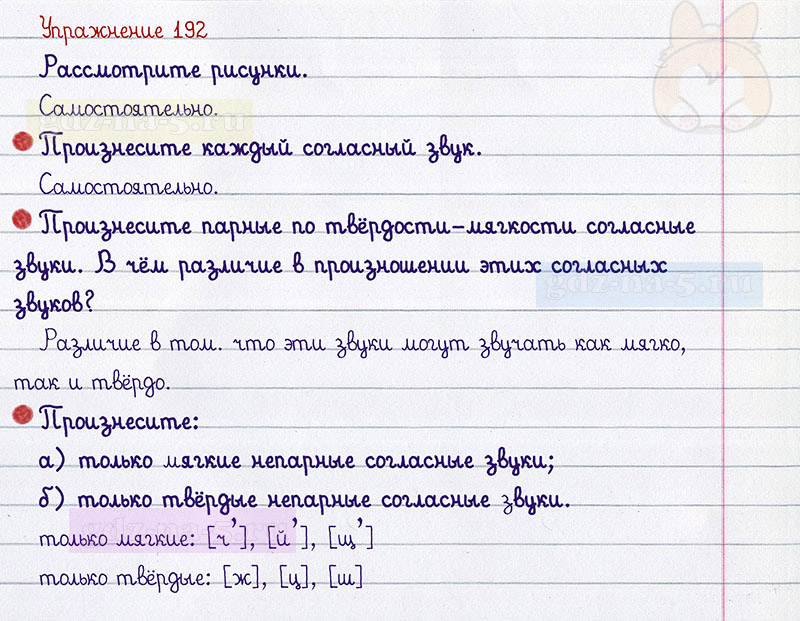 Упражнение 192
Рассмотрите рисунки.
Самостоятельно.
Произнесите каждый согласный звук.
Самостоятельно.
Произнесите парные по твёрдости-мягкости согласные
звуки. В чём различие в произношении этих согласных
звуков?
Различие в том. что эти звуки могут звучать как мягко,
так и твёрдо.
Произнесите:
а) только мягкие непарные согласные звуки;
б) только твёрдые непарные согласные звуки.
только мягкие: [ч’], [й’], [щ’]
только твёрдые: [ж], [ц], [ш]
gdz-na-5.ru
gdz-na-5.ru
gdz-na-5.ru